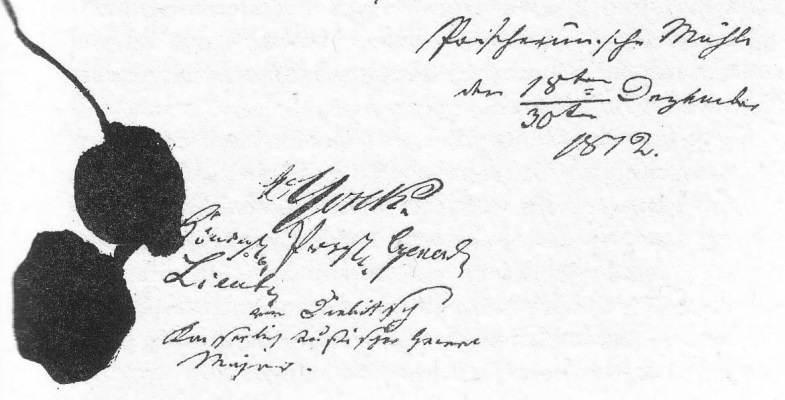 Poscherunsche Mühle
den 18ten/30ten Dezember
1812.
v. Yorck.
Königl. Preuß. General
Lieut.
von Diebitsch
Kaiserlich Russischer General
Major.